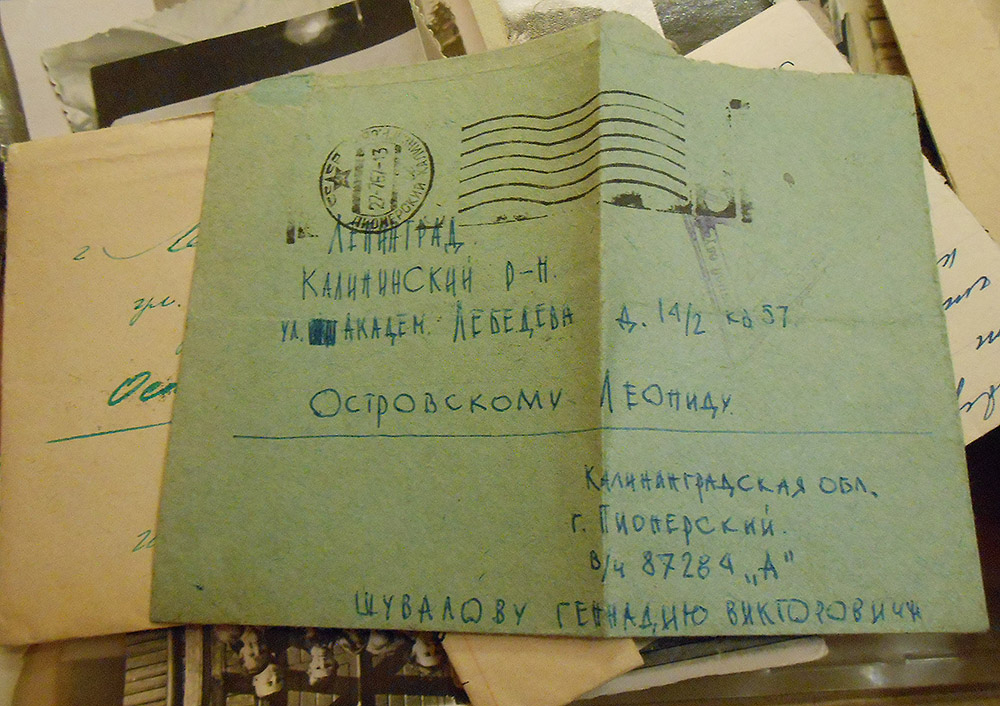 СССР
27-767-13
ПИОНЕРСКИЙ
ЛЕНИНГРАД.
КАЛИНИНСКИЙ Р-Н.
УЛ. АКАДЕМ. ЛЕБЕДЕВА Д. 14/2 кв 57.
ОСТРОВСКОМУ ЛЕОНИДУ.
КАЛИНИНГРАДСКАЯ ОБЛ.
г. ПИОНЕРСКИЙ.
В/ч 87284 „А"
ШУВАЛОВУ ГЕННАДИЮ ВИКТОРОВИЧУ
г
ул.
Ост